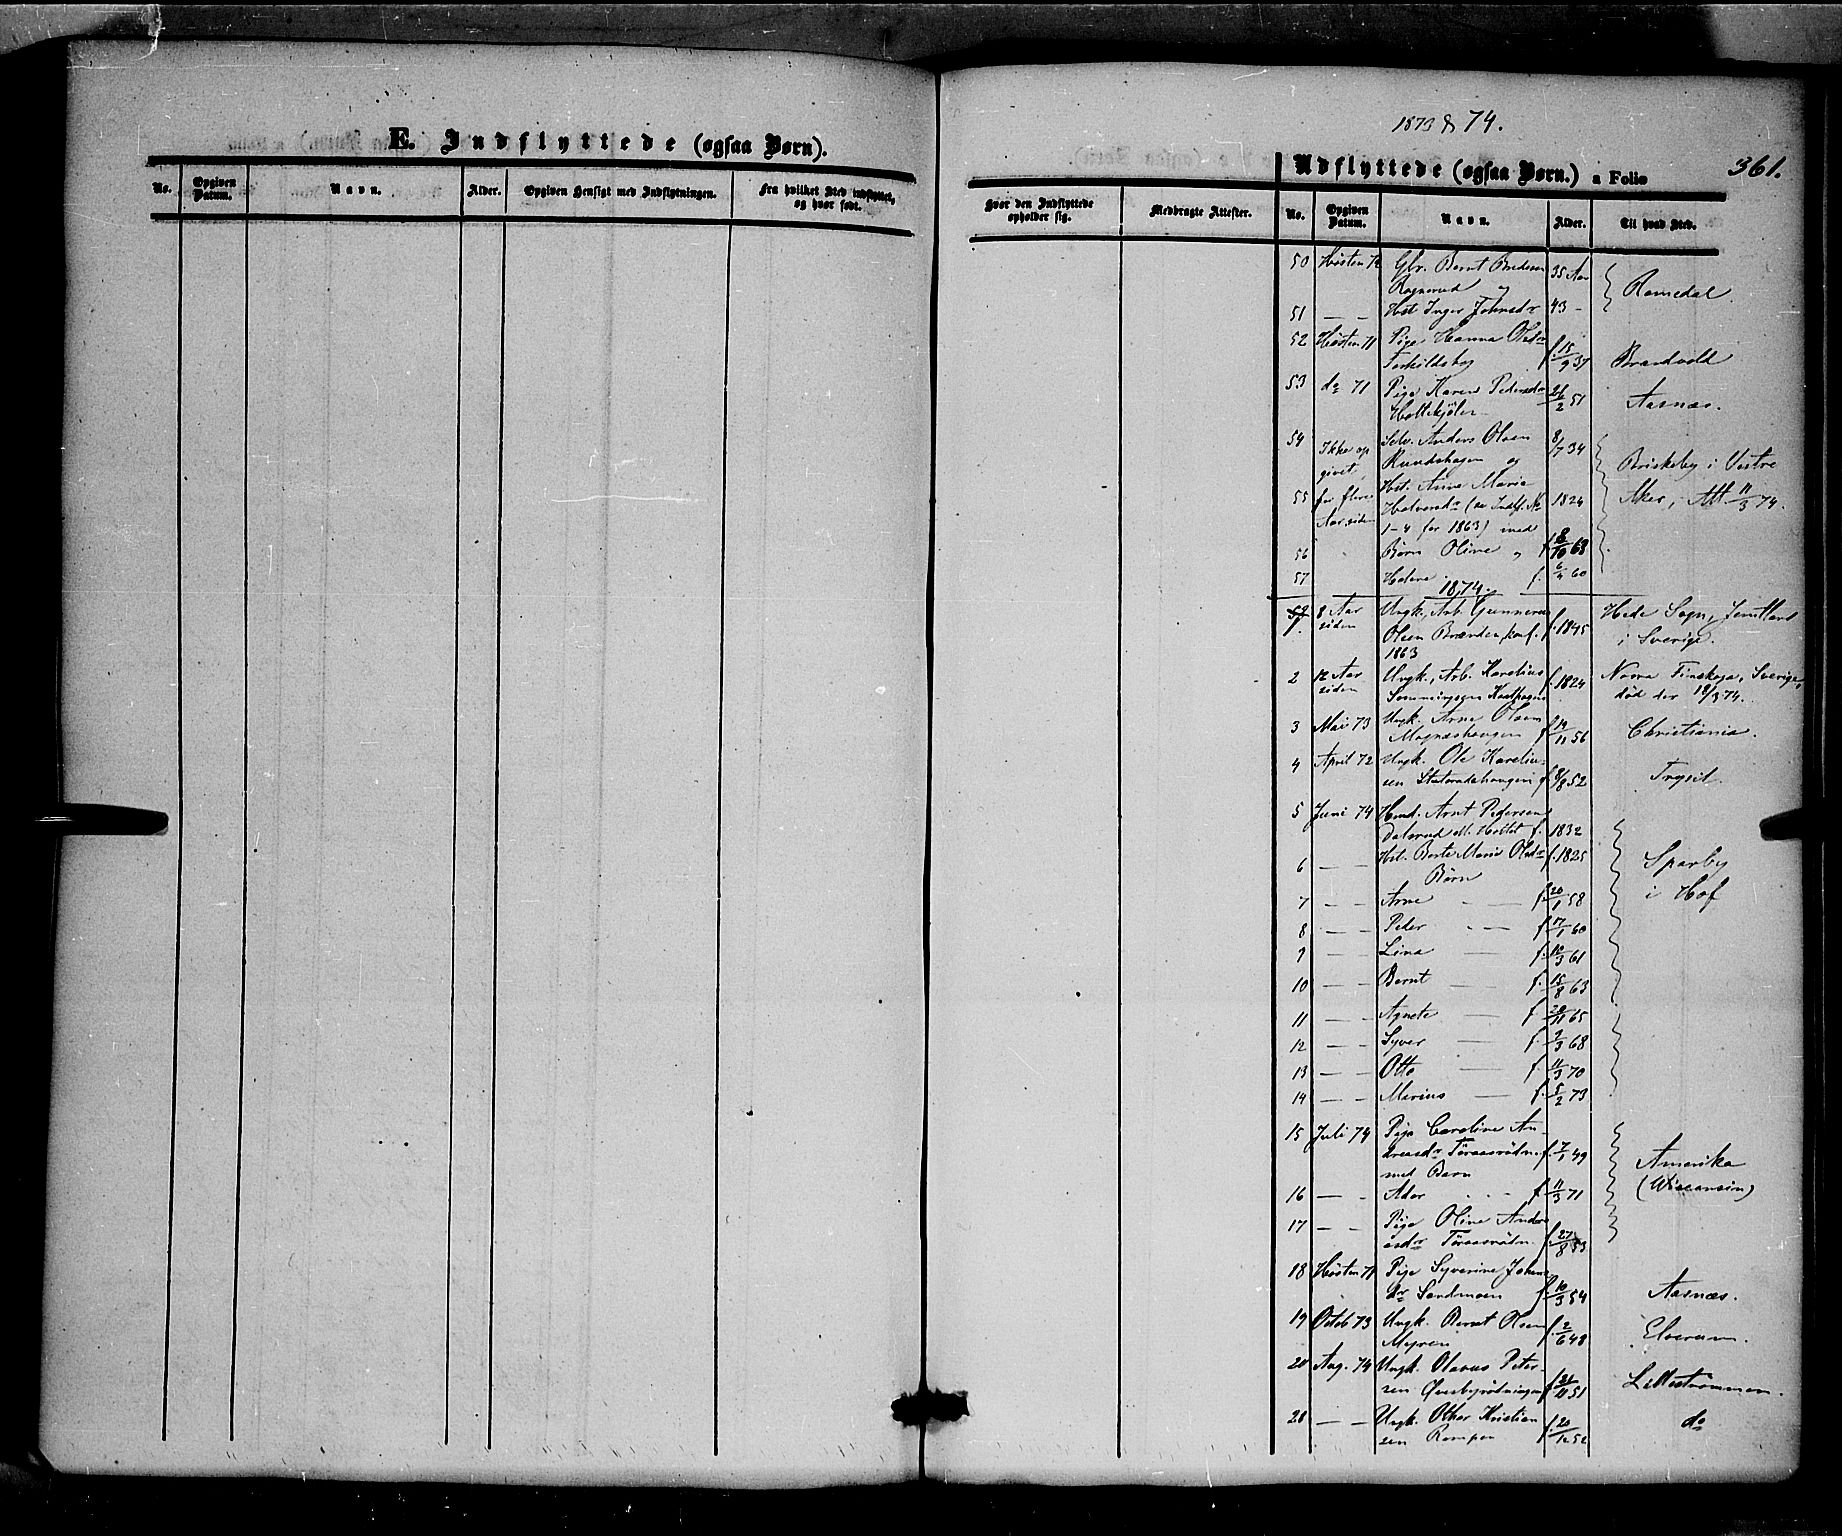 E. Indflyttede (ogsaa Børn).
No. Opgiven Datum. Navn. Alder. Opgiven Hensigt med Indflytningen. Fra hvilket Sted indflyttet, og hvor født.
1873 & 74.
Udflyttede (ogsaa Børn.) a Folio 361.
Hvor den Indflyttede opholder sig. Medbragte Attester. No. Opgiven Datum. Navn. Alder. Til hvad Sted.
50 Høsten 72 Gbr. Bernt 35 Aar
og Romedal.
51 — — Hst Inger Johnsdr 43 -
52 Høsten 71 Pige Hanna Olsdr
f. 15/9 37 Brandvold
53 do 71 Pige Karen Pedersdr 26/2 51 Aasnæs.
54 Ikke op Selv. Anders Olsen 8/7 34
givet, Rundhagen og Briskeby i Vestre
55 for flere Hst. Anne Maria Aker, Att 11/3 74.
Aar siden Halvorsdr (se Indfl. No 1824
1-4 for 1863) med
56 Børn Oline og f. 8/10 68
57 Helene f. 6/4 60
1874.
1. 8 Aar Ungk. Arb. Gunnerus Hede Sogn, Jemtland
siden Olsen Brænden, konf. f. 1845 i Sverige.
1863
2 12 Aar Ungk., Arb. Karelius f. 1824 Norra Finskoga, Sverige,
siden død der 18/3 74.
3 Mai 73 Ungk. Arne Olsen Christiania.
Magnæshaugen f. 19/11 56
4 April 72 Ungk. Ole Kareliu-
sen f. 8/8 52 Trysil.
5 Juni 74 Hmd. Arnt Pedersen
Dalsrud f. 1832
6 — — Hst. Berte Marie Olsdr f. 1825 Sparby
Børn i Hof
7 — — Arne — f. 20/1 58
8 — — Peder — f. 17/1 60
9 — — Lina — f. 12/3 61
10 — — Bernt — f. 15/8 63
11 — — Agnete — f. 28/11 65
12 — — Syver — f. 7/3 68
13 — — Otto — f. 11/3 70
14 — — Marius — f. 5/2 73
15 Juli 74 Pige Caroline An-
dreasdr f. 7/1 49 Amerika
med Barn (Wisconsin)
16 — - Ador f. 11/3 71
17 — - Pige Oline Andre
asdr f. 27/8 53
18 Høsten 71 Pige Syverine Johans
dr Sandmoen f. 10/3 54 Aasnæs.
19 Octob 73 Ungk. Bernt Olsen
Myren f. 2/6 48 Elverum.
20 Aug. 74 Ungk. Olavus Peter-
sen f. 21/11 51 Lillestrømmen.
21 — — Ungk. Other Kristian
sen Rompen f. 20/12 52 do